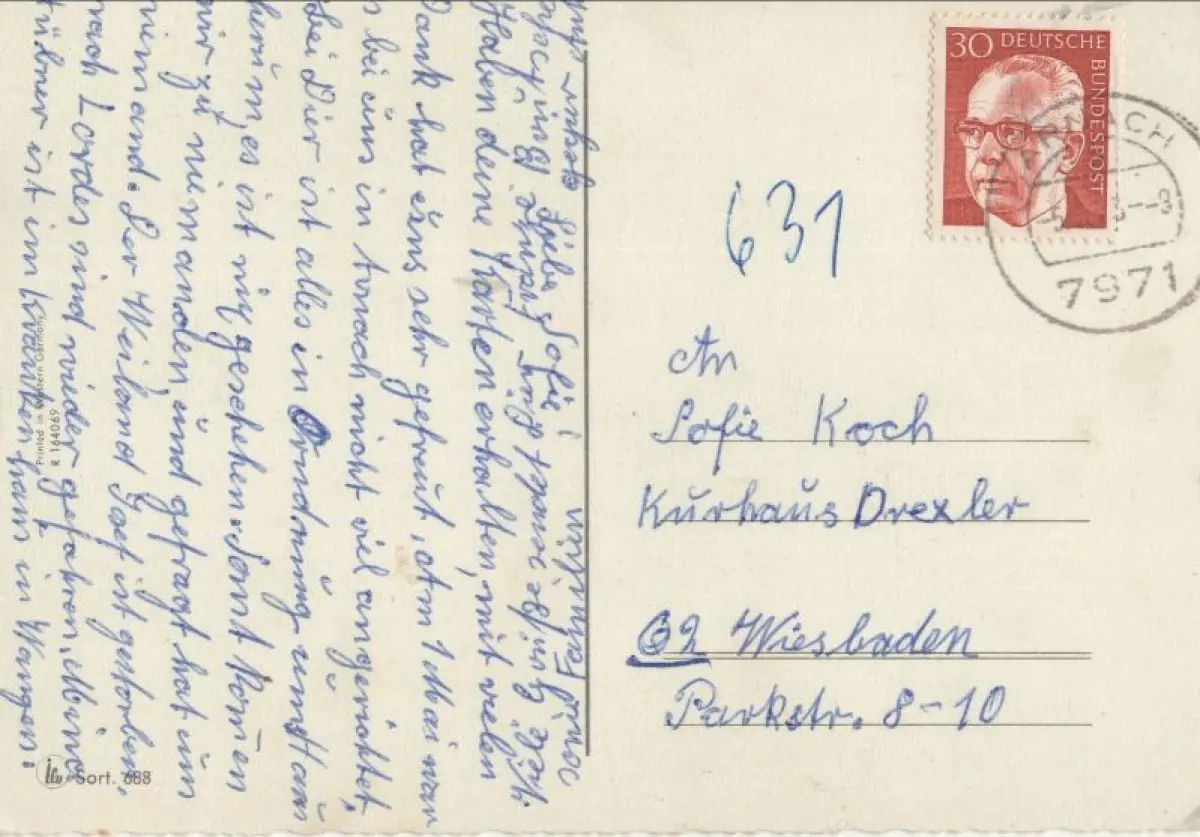 30 DEUTSCHE BUNDESPOST
7971
631
An
Sofie Koch
Kurhaus Drexler
62 Wiesbaden
Parkstr. 8-10
Liebe Sofie!
Haben deine Karten erhalten, mit vielen
Dank hat uns sehr gefreut, Am 1 Mai war
bei uns in nicht viel angerichtet,
bei Dir ist alles in Ordnung ums Haus
herum, es ist nix geschehen. Sonst komen
wir zu niemanden, und gefragt hat uns
niemand. Der Weiland Josef ist gestorben,
nach Lordes sind wieder gefahren,
ist im krankenhaus in Wangen
Printed in Western Germany
R 164069
Sort. 688